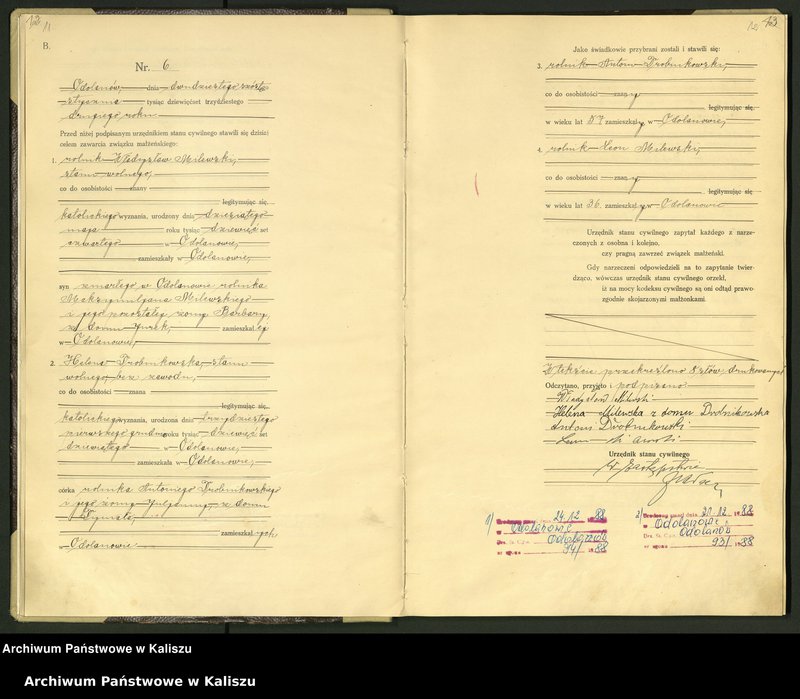 B.
Nr. 6
Odolanów, dnia dwudziestego szóstego
stycznia tysiąc dziewięćset trzydziestego
drugiego roku
Przed niżej podpisanym urzędnikiem stanu cywilnego stawili się dzisiaj
celem zawarcia związku małżeńskiego:
1. rolnik Władysław Milewski,
stanu wolnego,
co do osobistości znany
legitymując się
katolickiego wyznania, urodzony dnia dziesiątego
maja roku tysiąc dziewięć set
czwartego w Odolanowie,
zamieszkały w Odolanowie,
syn zmarłego w Odolanowie rolnika
Maksymiljana Milewskiego
i jego pozostałej żony Barbary,
z domu Jurek, zamieszkałej
w Odolanowie,
2. Helena Drobnikowska, stanu
wolnego, bez zawodu,
co do osobistości znana
legitymując się
katolickiego wyznania, urodzona dnia trzydziestego
pierwszego grudnia roku tysiąc dziewięć set
dziewiątego w Odolanowie,
zamieszkała w Odolanowie,
córka rolnika Antoniego Drobnikowskiego
i jego żony Juljanny, z domu
zamieszkałych
w Odolanowie
Jako świadkowie przybrani zostali i stawili się:
3. rolnik Antoni Drobnikowski,
co do osobistości znany
legitymując się
w wieku lat 57 zamieszkały w Odolanowie,
4. rolnik Leon Milewski,
co do osobistości znany
legitymując się
w wieku lat 36 zamieszkały w Odolanowie
Urzędnik stanu cywilnego zapytał każdego z narze-
czonych z osobna i kolejno,
czy pragną zawrzeć związek małżeński.
Gdy narzeczeni odpowiedzieli na to zapytanie twier-
dząco, wówczas urzędnik stanu cywilnego orzekł,
iż na mocy kodeksu cywilnego są oni odtąd prawo-
zgodnie skojarzonymi małżonkami.
W tekście przekreślono 8 słów drukowanych
Odczytano, przyjęto i podpisano:
Władysław Milewski
Helena Milewska z domu Drobnikowska
Antoni Drobnikowski
Leon Milewski
Urzędnik stanu cywilnego
w zastępstwie
1) 24.12 88
w Odolanowie
Odolanów
94/ 88
2) Urodzony dnia 31.12 1988
w Odolanowie
Odolanów
93/ 1988
Archiwum Państwowe w Kaliszu
Archiwum Państwowe w Kaliszu